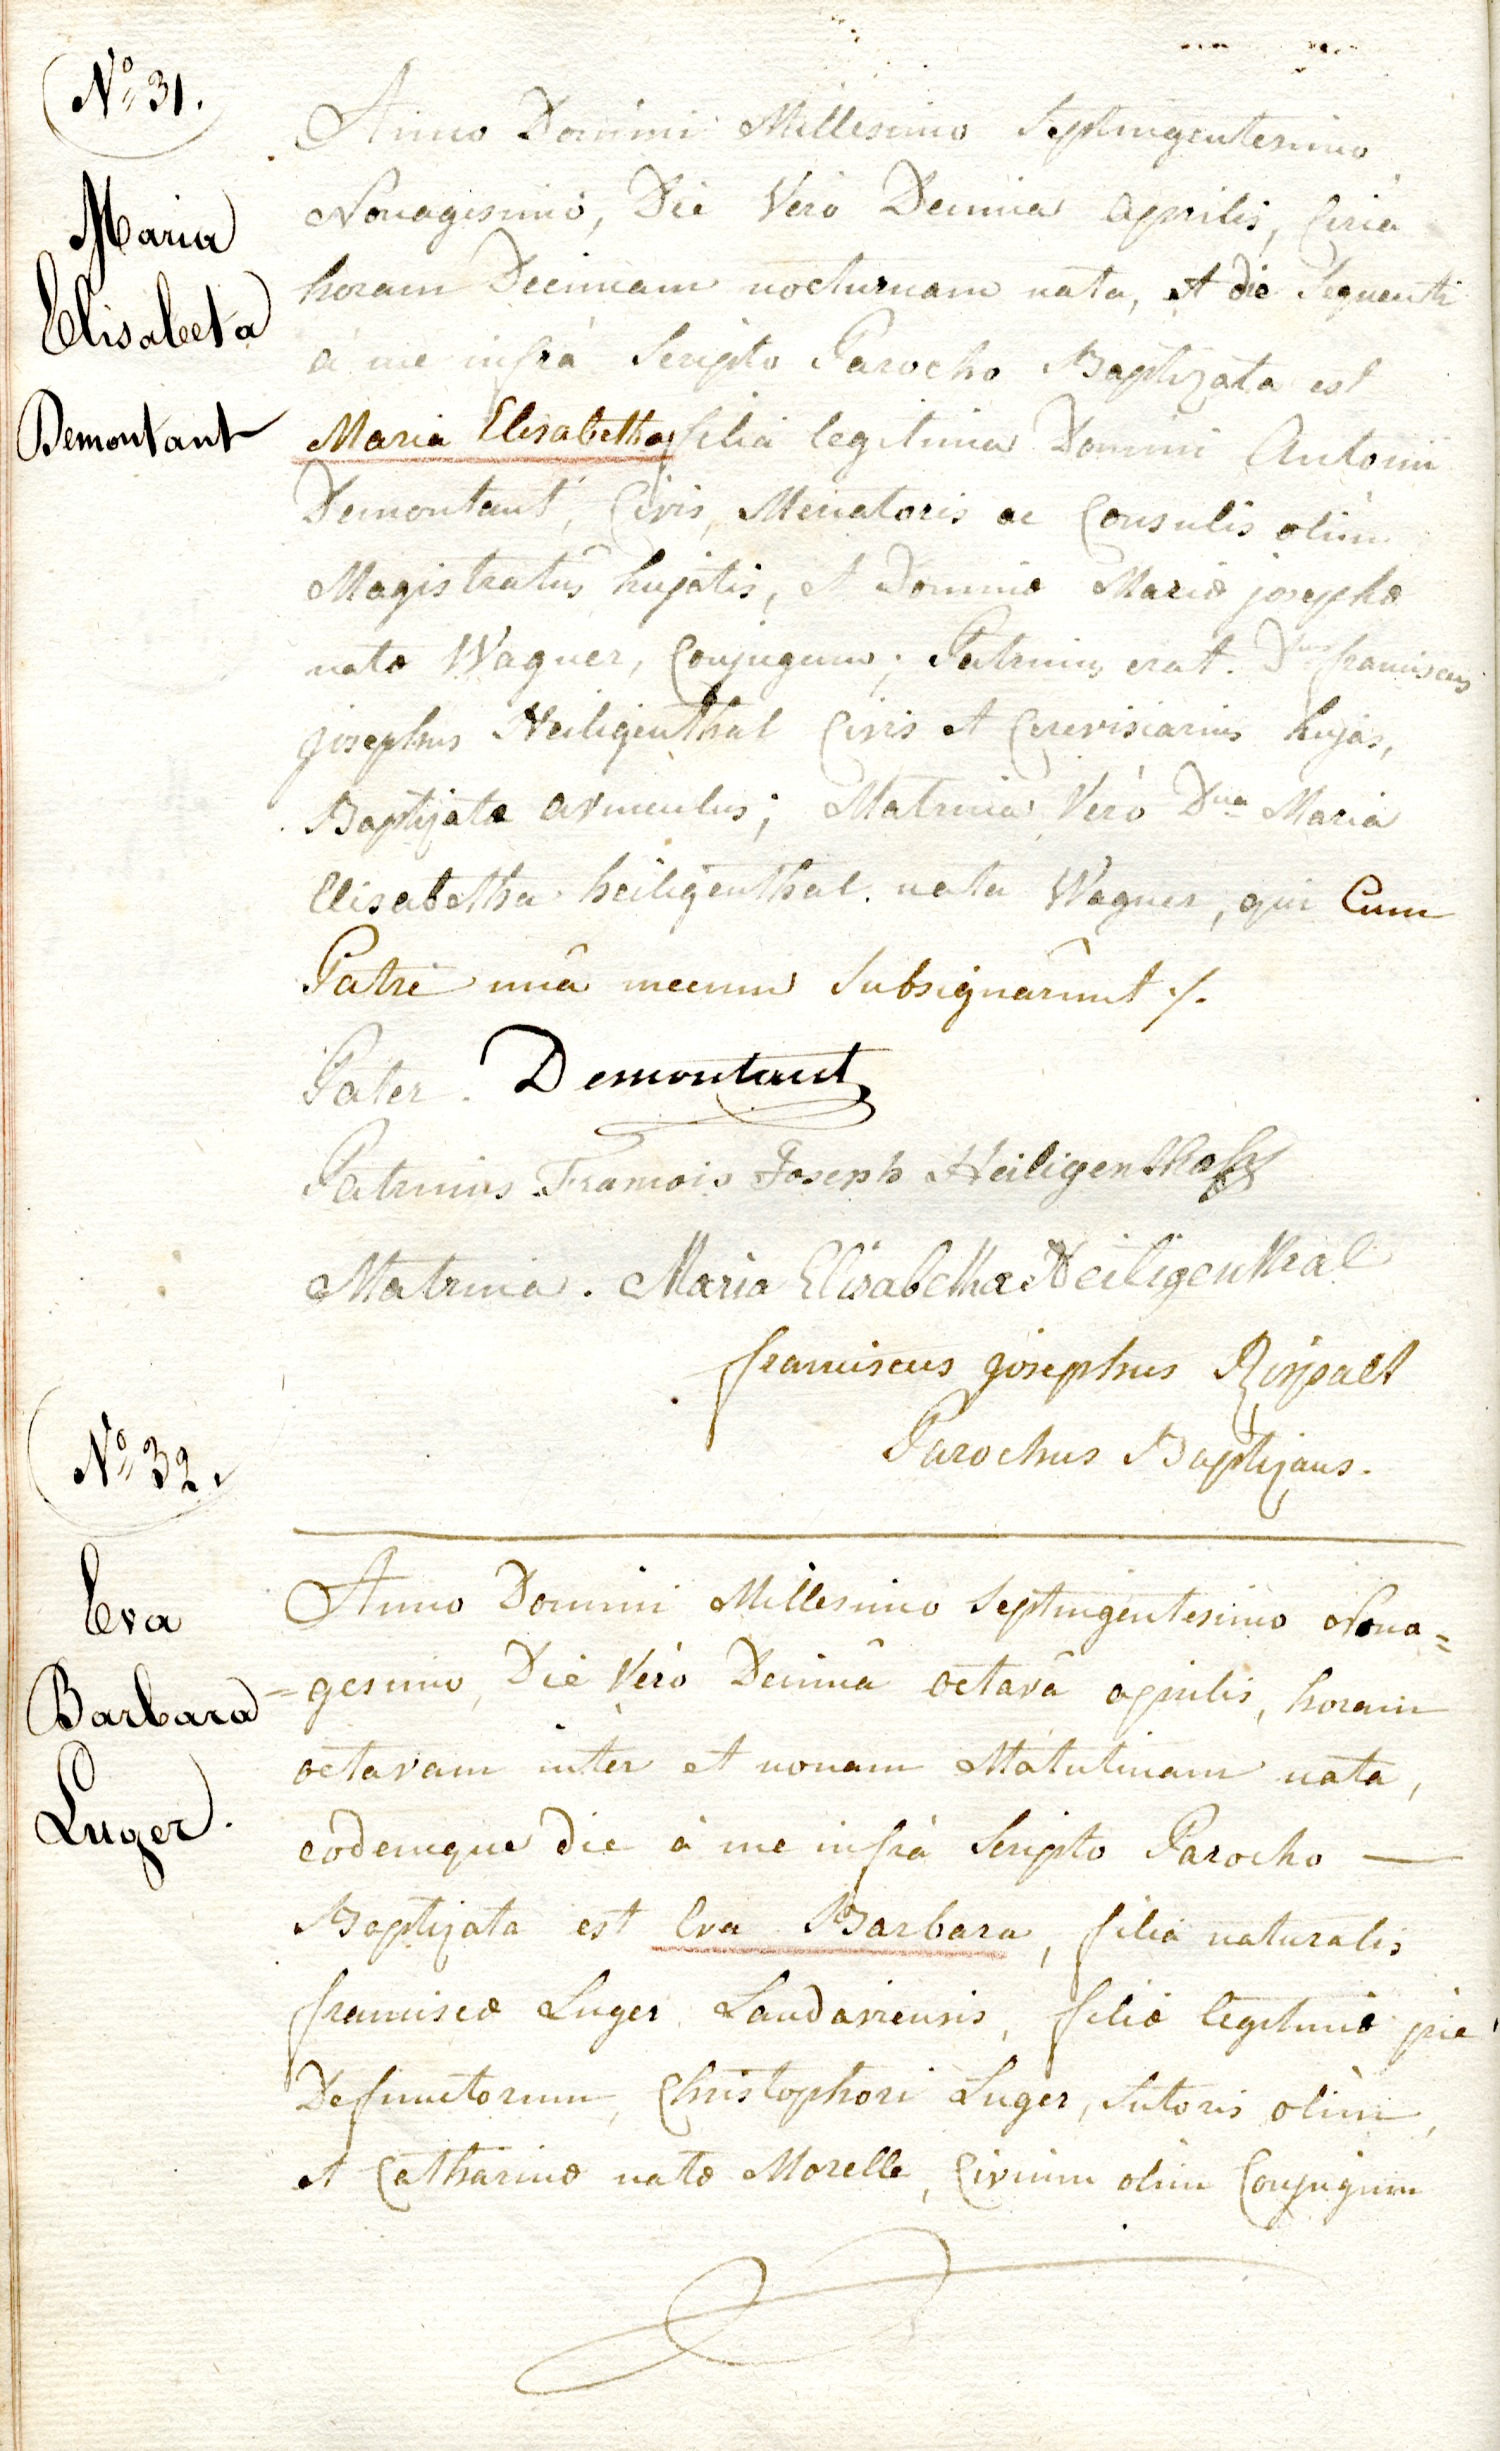 No 31.
Maria
Elisabeta
Demontant
Anno Domini Millesimo Septingentesimo
Nonagesimo, Die Verò Decimâ Aprilis, Circà
horam Decimam nocturnam nata, et die Sequenti
à me infrà Scripto Parocho Baptizata est
Maria Elisabetha, filia legitima Domini Antonii
Demontant, Civis, Mercatoris ac Consulis olim
Magistratûs hujatis, et Dominæ Mariæ josephæ
natæ Wagner, Conjugum; Patrinus erat Dnus franciscus
josephus Heiligenthal Civis et Cerevisiarius hujas,
Baptizatæ avunculus; Matrina Verò Dna Maria
Elisabetha heiligenthal nata Wagner, qui Cum
Patre unà mecum Subsignârunt ./.
Pater. Demontant
Patrinus. Francois Joseph Heiligenthal
Matrina. Maria Elisabetha Heiligenthal
franciscus josephus
Parochus Baptizans.
No 32.
Eva
Barbara
Luger.
Anno Domini Millesimo Septingentesimo Nona=
=gesimo, Die Verò Decimâ octavâ aprilis, horam
octavam inter et nonam Matutinam nata,
eôdemque die à me infrà Scripto Parocho —
Baptizata est Eva Barbara, filia naturalis
franciscæ Luger Landaviensis, filiæ legitimæ piè
Defunctorum, Christophori Luger, Sutoris olim,
et Catharinæ natæ Morelle, Civium olim Conjugum